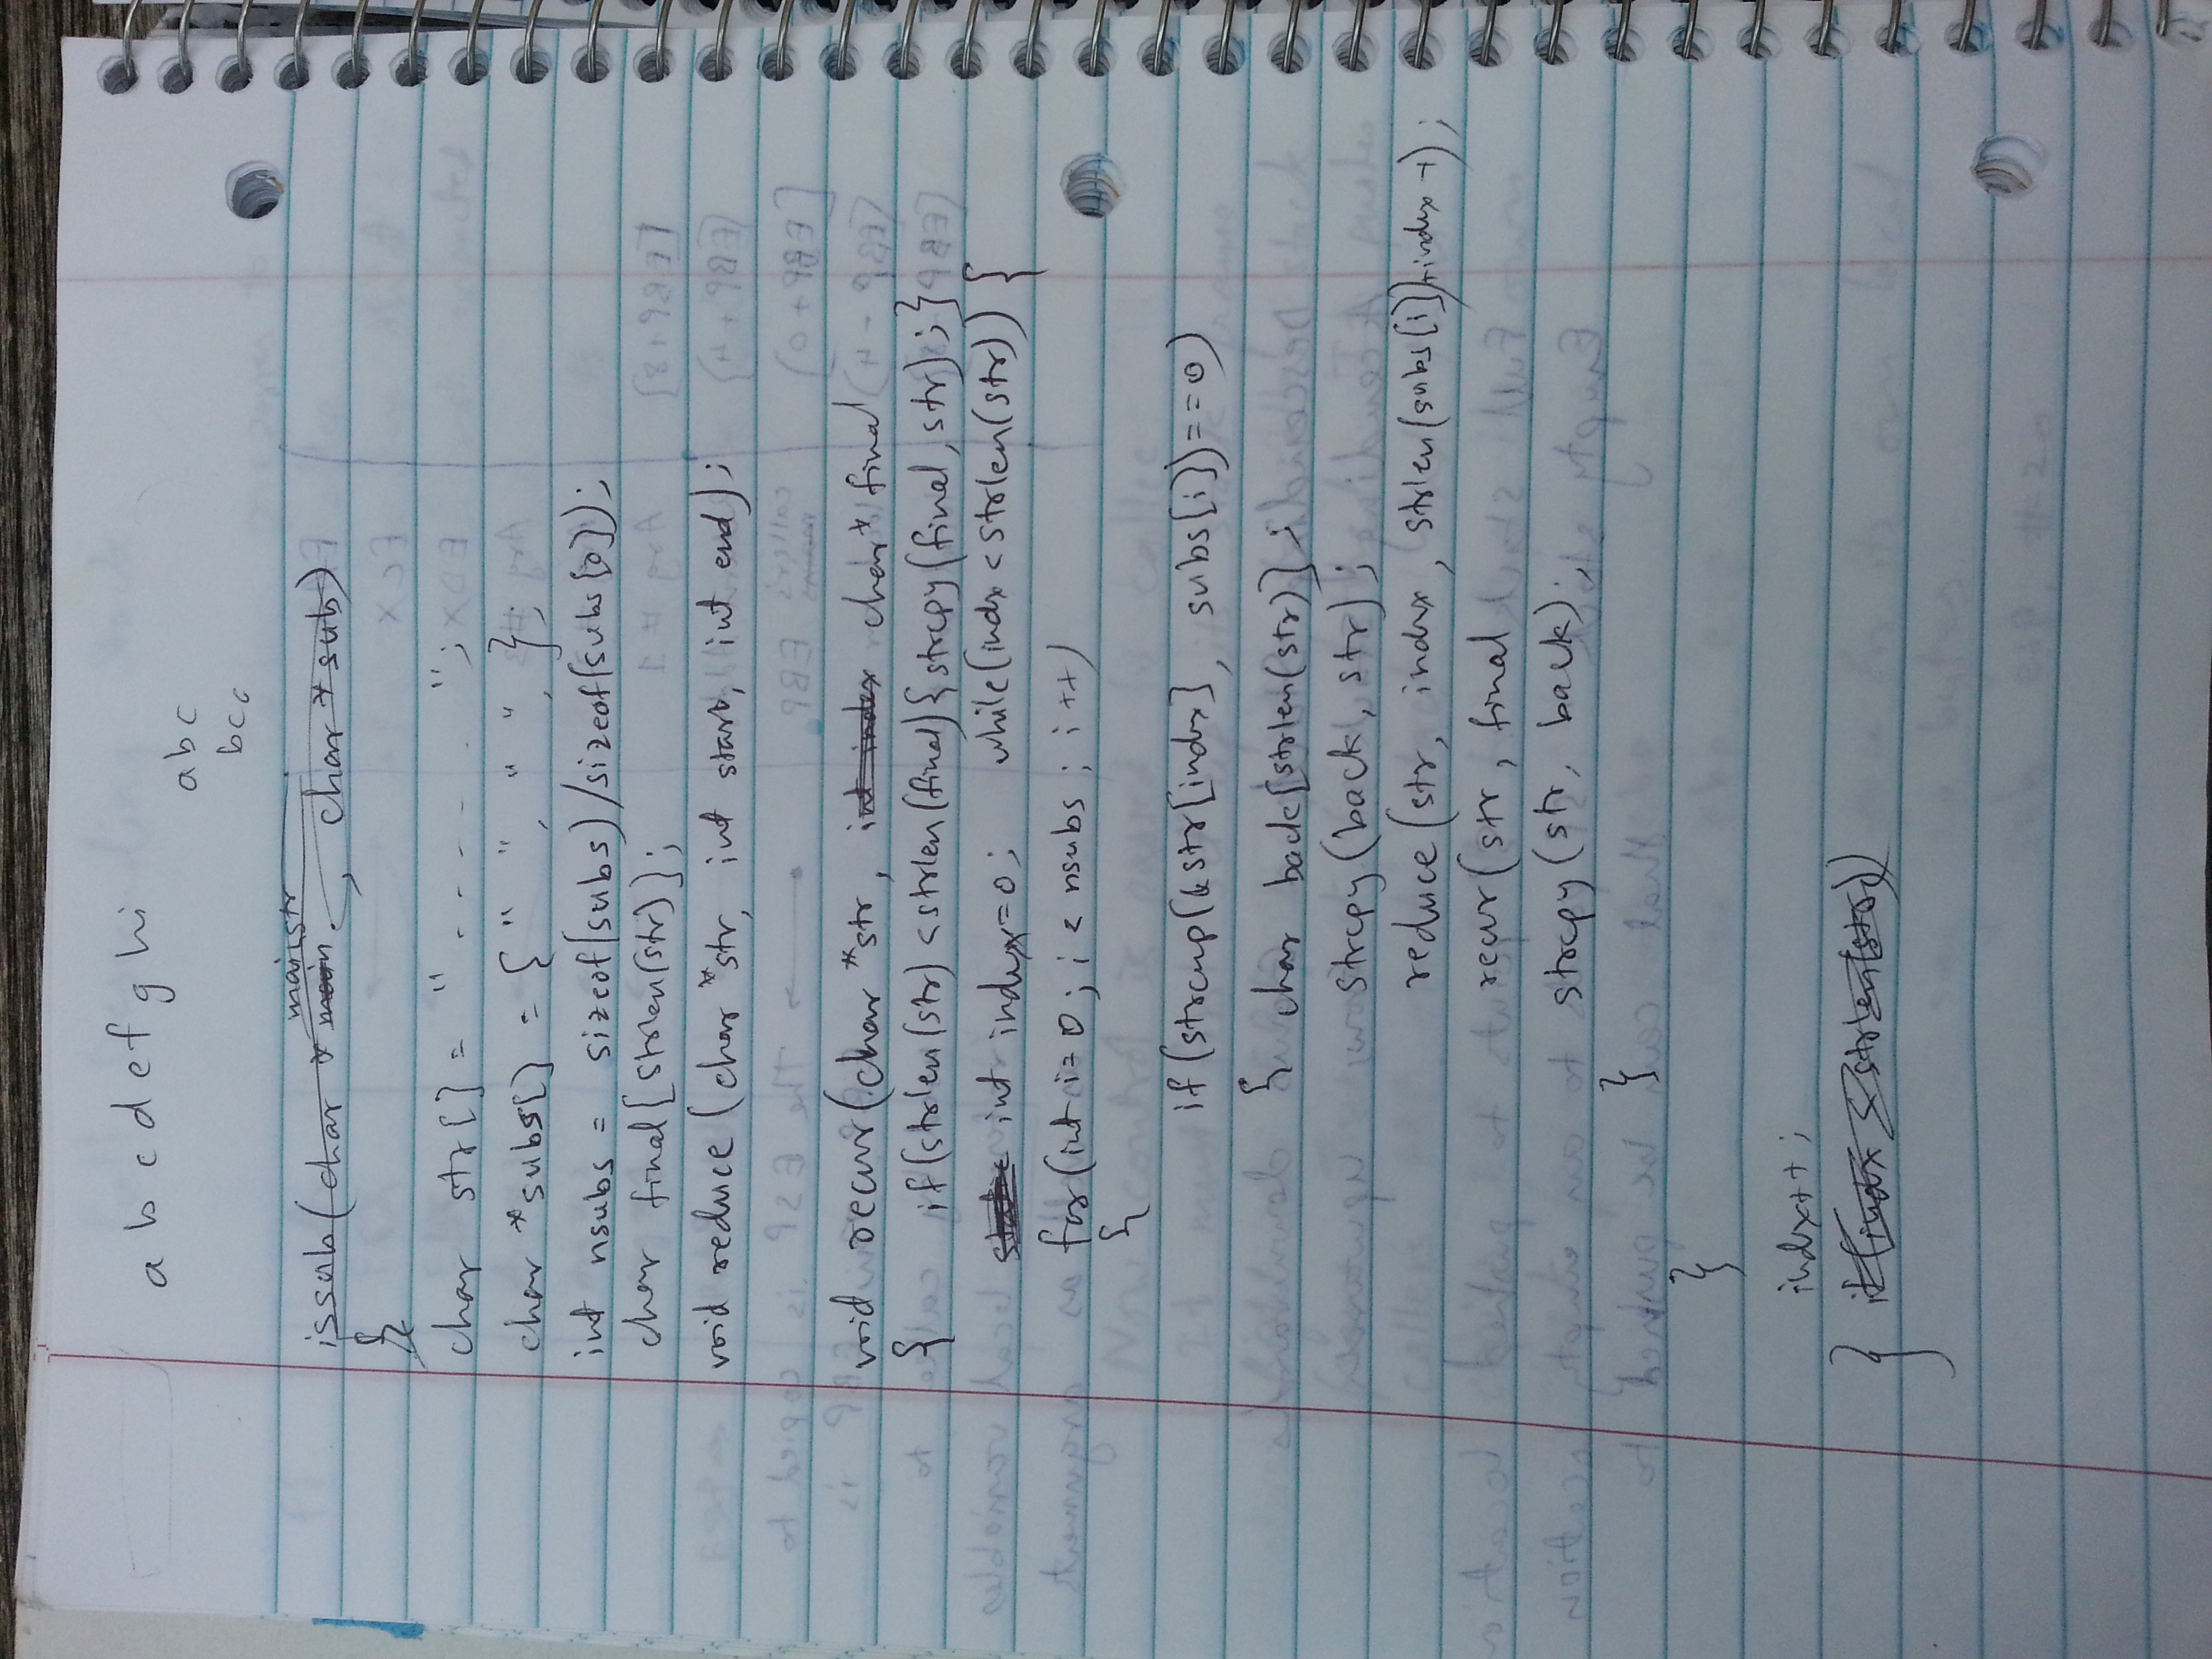 a b c d e f g h i
abc
bcc
issub(char * mainstr, char *sub)
{
char str[] = " - - - - - . ";
char *subs[] = { " ", " ", };
int nsubs = sizeof(subs)/sizeof(subs[0]);
char final[strlen(str)];
void reduce (char *str, int start, int end);
void recur(char *str, int index char* final
{ if(strlen(str) <strlen(final){strcpy(final, str);}
static int index=0; while(indx <strlen(str)) {
for(int i=0; i < nsubs; i++)
{
if(strcmp(&str[index], subs[i])==0)
{ char back[strlen(str)];
strcpy(back, str);
reduce(str, index, strlen(subs[i])+index -1);
recur(str, final
strcpy(str, back);
}
}
index++;
} if(indx < strlen(str))